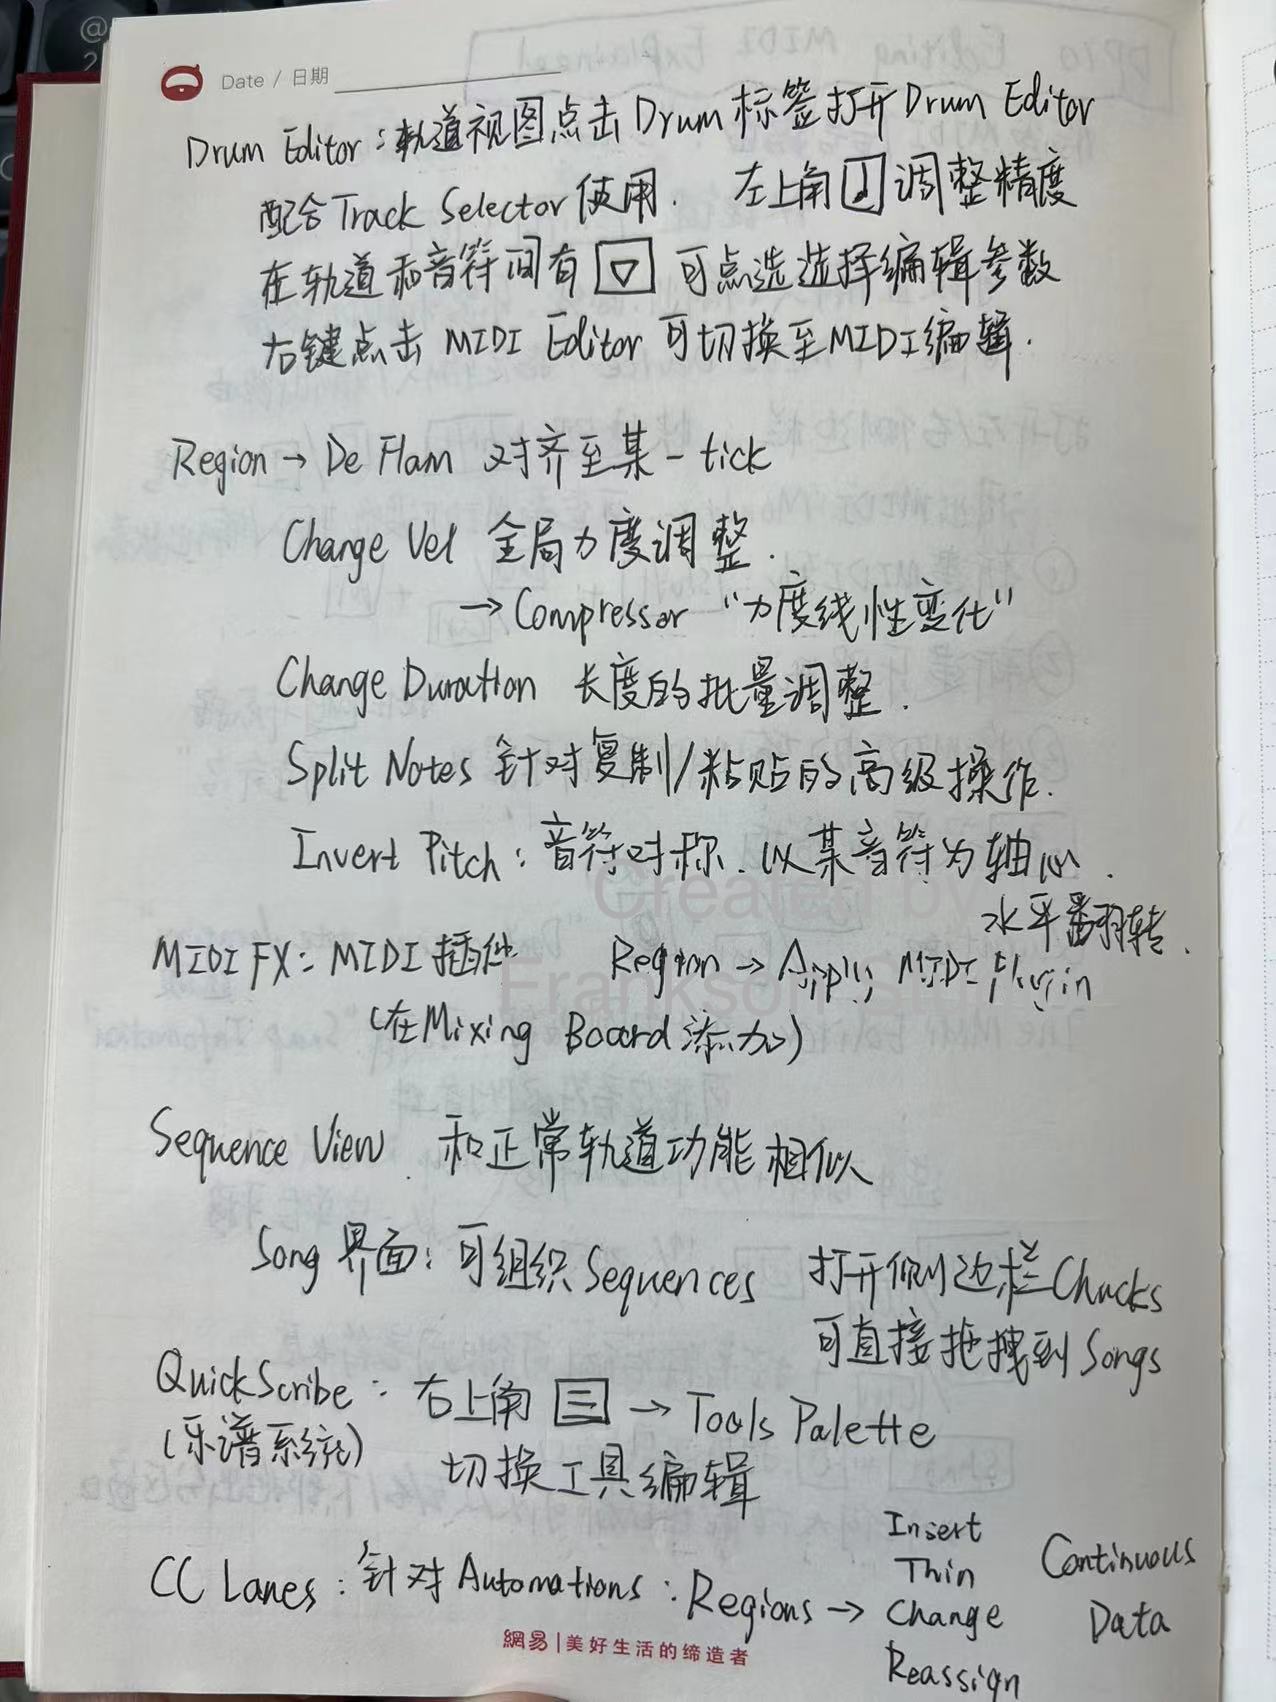 Date / 日期
Drum Editor：轨道视图点击Drum标签打开Drum Editor
配合Track Selector使用. 左上角♩调整精度
在轨道和音符间有▽可点选选择编辑参数
右键点击 MIDI Editor 可切换至MIDI编辑.
Region → De Flam 对齐至某一tick
Change Vel 全局力度调整.
→ Compressor “力度线性变化”
Change Duration 长度的批量调整.
Split Notes 针对复制/粘贴的高级操作.
Invert Pitch：音符对称.以某音符为轴心.
水平翻转.
MIDI FX：MIDI插件 Region → Apply MIDI Plugin
(在Mixing Board添加)
Created by
Frankson
Sequence View 和正常轨道功能相似
Song界面：可组织Sequences 打开侧边栏Chucks
可直接拖拽到Songs
QuickScribe：右上角☰ → Tools Palette
(乐谱系统) 切换工具编辑
CC Lanes：针对Automations：Regions →
Insert
Thin
Change
Reassign
Continuous
Data
網易|美好生活的缔造者